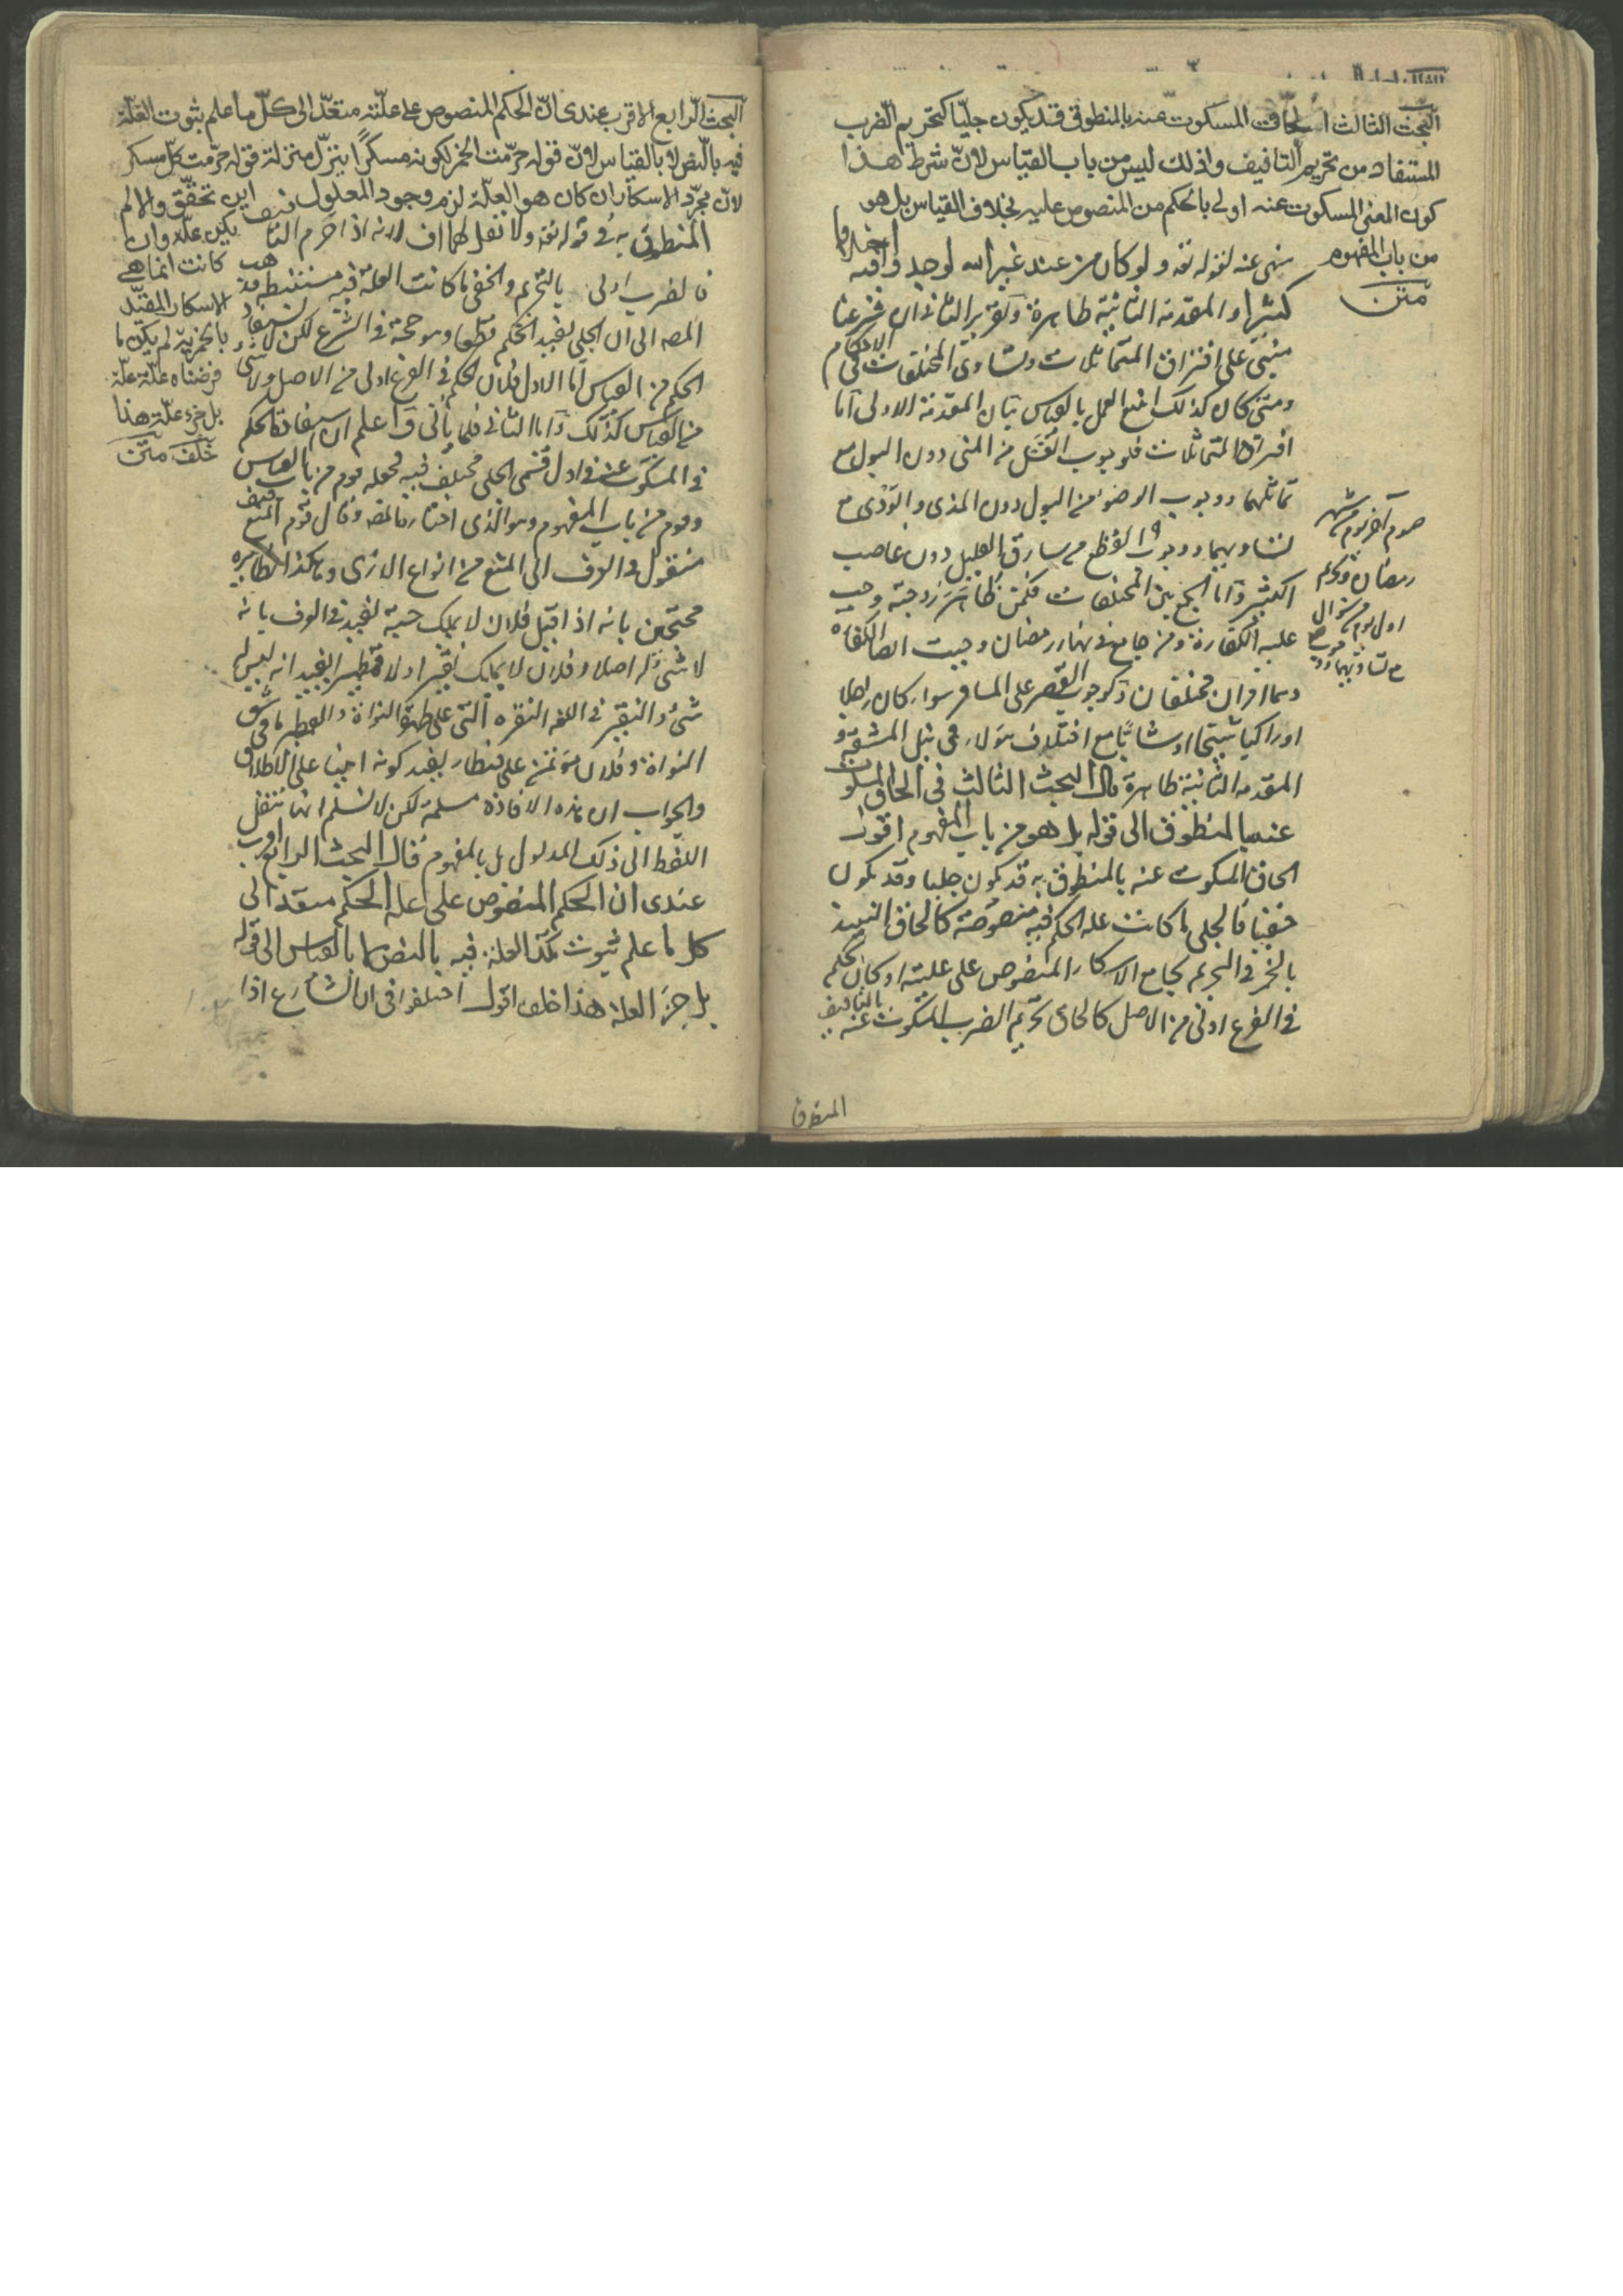 البحث الثالث الحاق المسكوت عنه بالمنطوق قد يكون جليا كتحريم الضرب
المستفاد من تحريم التافيف وذلك ليس من باب القياس لان شرط هذا
كون المعنى المسكوت عنه اولى بالحكم من المنصوص عليه بخلاف القياس بل هو
من باب المفهوم
متن
نهى عنه لقوله تعه ولو كان من عند غير الله لوجدوا فيه اختلافا
كثيرا والمقدمة الثانية ظاهرة وتقرير الثانى ان شرعنا
مبنى على افتراق المتماثلات وتساوى المختلفات فى الاحكام
ومتى كان كذلك امتنع العمل بالقياس بيان المقدمة الاولى اما
افتراق المتماثلات فلوجوب الغسل من المنى دون البول مع
تماثلهما ووجوب الوضوء من البول دون المذى والودى مع
تساويهما ووجوب القطع من سارق القليل دون غاصب
الكثير واما الجمع بين المختلفات فكمن ظاهر زوجته وجب
عليه الكفارة ومن جامع فى نهار رمضان وجبت ايضا الكفاره
وهما امران مختلفان وكوجوب القصر على المسافر سواء كان راجلا
او راكبا شيخا او شابا مع اختلاف هؤلاء فى نيل المشقة و
المقدمة الثانية ظاهرة قال البحث الثالث فى الحاق المسكوت
عنه بالمنطوق الى قوله بل هو من باب المفهوم اقول
الحاق المسكوت عنه بالمنطوق به قد يكون جليا وقد يكون
خفيا فالجلى ما كانت علة الحكم فيه منصوصة كالحاق النبيذ
بالخمر فى التحريم بجامع الاسكار المنصوص على علته او كان الحكم
فى الفرع اولى من الاصل كالحاق تحريم الضرب المسكوت عنه بالتافيف
المنطوق
صوم آخر يوم من شهر
رمضان وتحريم
اول يوم من شوال
مع تساويهما
البحث الرابع الاقرب عندى ان الحكم المنصوص على علته متعد الى كل ما علم ثبوت العلة
فيه بالنص لا بالقياس لان قوله حرمت الخمر لكونه مسكرا ينزل منزلة قوله حرمت كل مسكر
لان مجرد الاسكار ان كان هو العلة لزم وجود المعلول اين تحقق والا لم
يكن علة وان
كانت انما هى
الاسكار المقيد
بالخمرية لم يكن ما
فرضناه علة علة
بل جزء علة هذا
خلف متن
المنطوق به فى قوله تعه ولا تقل لهما اف لانه اذا حرم التافيف
فالضرب اولى بالتحريم والخفى ما كانت العلة فيه مستنبطة وذهب
المصه الى ان الجلى يفيد الحكم قطعا وهو حجة فى الشرع لكن لا يستفاد
الحكم من القياس اما الاول فلان الحكم فى الفرع اولى من الاصل ولا شئ
من القياس كذلك واما الثانى فلما يأتى واعلم ان استفادة الحكم
فى المسكوت عنه فى اول قسمى الجلى مختلف فيه فجعله قوم من باب القياس
وقوم من باب المفهوم وهو الذى اختاره المصه وقال قوم التافيف
منقول فى العرف الى المنع من انواع الاذى وهكذا نظايره
محتجين بانه اذا قيل فلان لا يملك حبة يفيد فى العرف بانه
لا شئ له اصلا وفلان لا يملك نقيرا ولا قطميرا يفيد انه ليس له
شئ والنقير فى اللغه النقره التى على ظهر النواة والقطمير ما فى شق
النواة وفلان مؤتمن على قنطار يفيد كونه امينا على الاطلاق
والجواب ان هذه الافادة مسلمة لكن لا نسلم انها بنقل
اللفظ الى ذلك المدلول بل بالمفهوم قال البحث الرابع الاقرب
عندى ان الحكم المنصوص على علة الحكم متعد الى
كل ما علم ثبوت تلك العلة فيه بالنص لا بالقياس الى قوله
بل جزء العلة هذا خلف اقول اختلفوا فى ان الشارع اذا